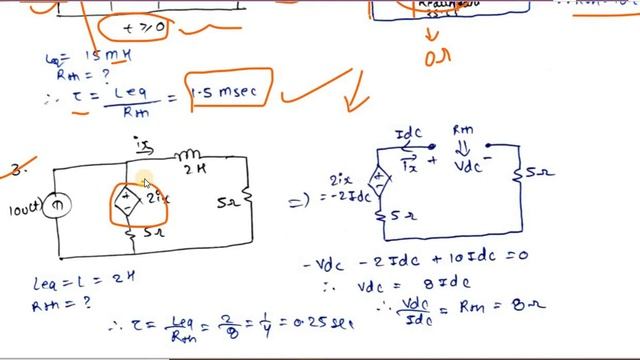 t ≥ 0
Leq = 15 mH
Rth = ?
∴ τ = Leq/Rth = 1.5 msec
or
3.
ix
2H
10u(t)
+
-
2ix
5Ω
5Ω
Leq = L = 2H
Rth = ?
∴ τ = Leq/Rth = 2/8 = 1/4 = 0.25 sec
Idc
Rth
⇓
Ix
+ Vdc -
=)
2ix
= -2Idc
+
-
5Ω
5Ω
-Vdc - 2Idc + 10Idc = 0
∴ Vdc = 8Idc
∴ Vdc/Idc = Rth = 8Ω